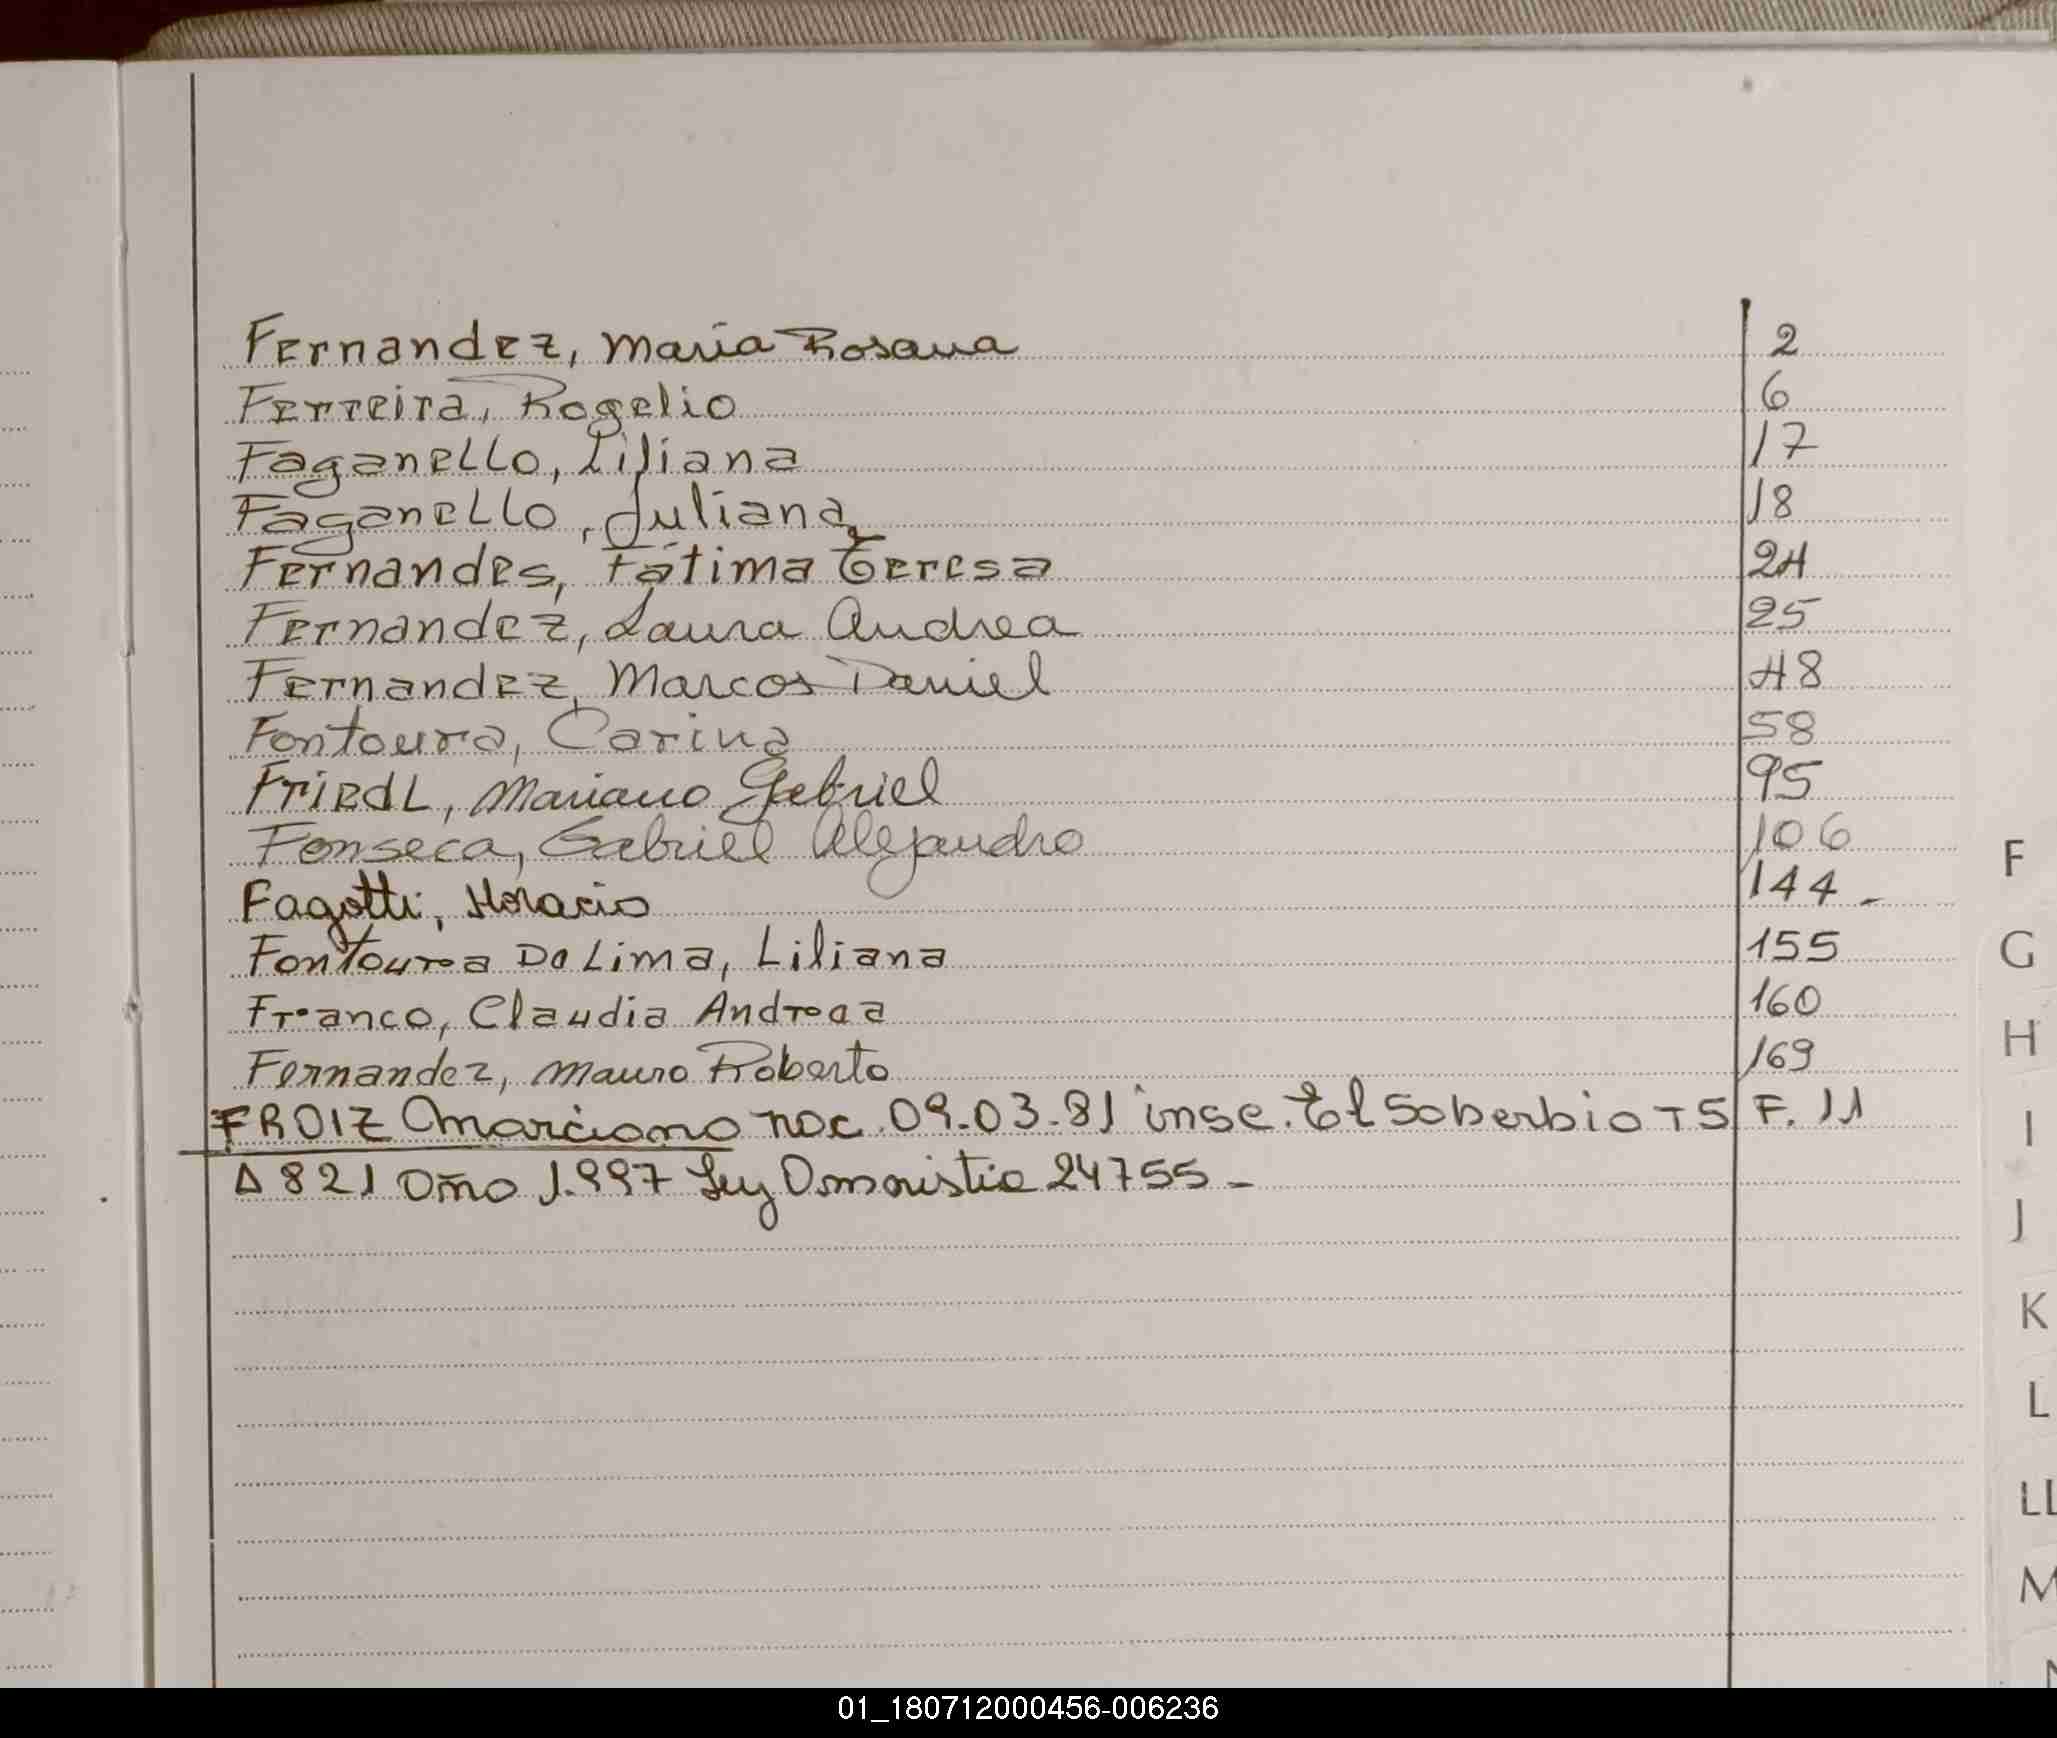 Fernandez, Maria Rosana 2
Ferreira, Rogelio 6
Faganello, Liliana 17
Faganello, Juliana 18
Fernandes, Fátima Teresa 24
Fernandez, Laura Andrea 25
Fernandez, Marcos Daniel 48
Fontoura, Carina 58
Friedl, Mariano Gabriel 95
Fonseca, Gabriel Alejandro 106
Fagotti, Horacio 144-
Fontoura Da Lima, Liliana 155
Franco, Claudia Andrea 160
Fernandez, Mauro Roberto 169
FROIZ Marciano nac. 09.03.81 insc. El Soberbio T5 F. 11
A 821 año 1.997 Ley Amnistia 24755-
F
G
H
I
J
K
L
LL
M
01_180712000456-006236